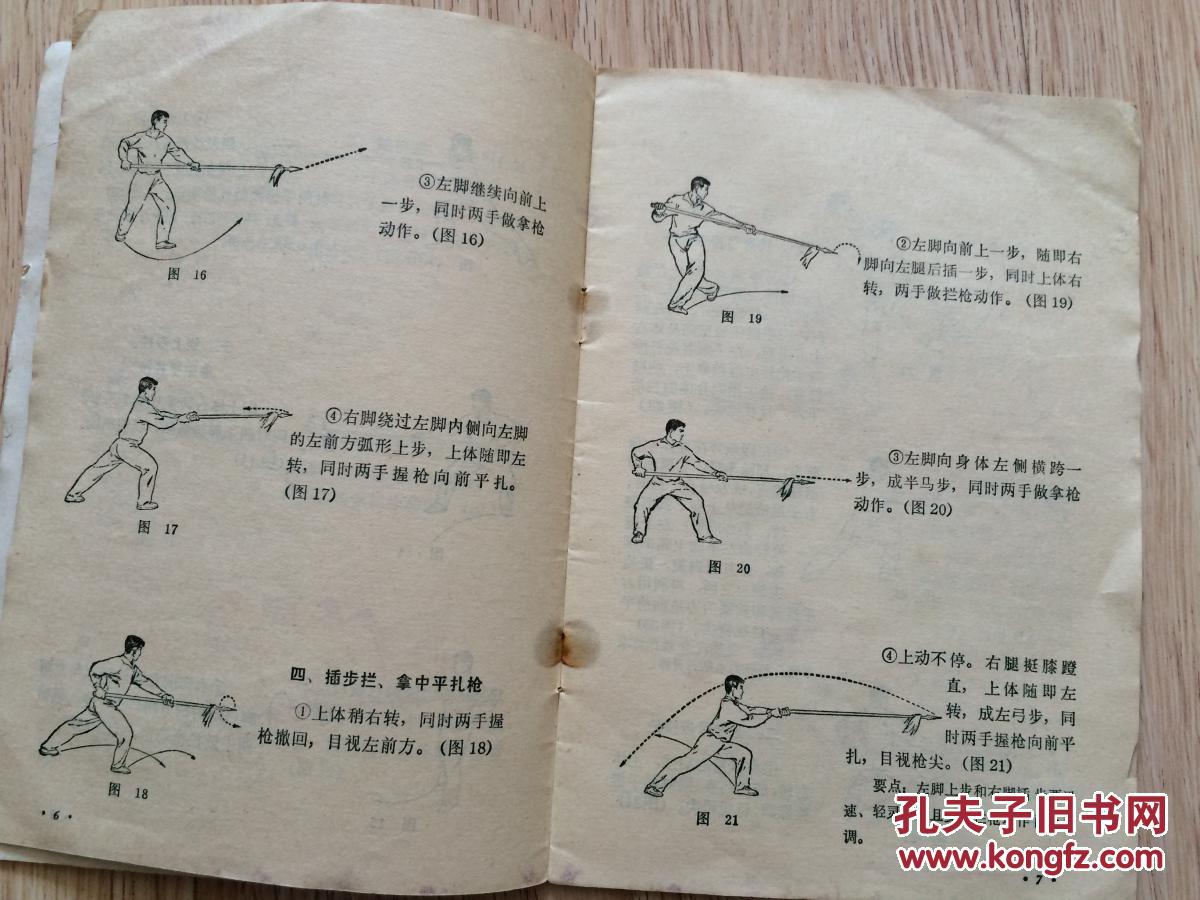 ③左脚继续向前上
一步，同时两手做拿枪
动作。(图16)
图 16
④右脚绕过左脚内侧向左脚
的左前方弧形上步，上体随即左
转，同时两手握枪向前平扎。
(图17)
图 17
四、插步拦、拿中平扎枪
①上体稍右转，同时两手握
枪撤回，目视左前方。(图18)
图 18
·6·
②左脚向前上一步，随即右
脚向左腿后插一步，同时上体右
转，两手做拦枪动作。(图19)
图 19
③左脚向身体左侧横跨一
步，成半马步，同时两手做拿枪
动作。(图20)
图 20
④上动不停。右腿挺膝蹬
直，上体随即左
转，成左弓步，同
时两手握枪向前平
扎，目视枪尖。(图21)
图 21
要点：左脚上步和右脚插步要
速、轻灵
调。
·7·
孔夫子旧书网
www.kongfz.com